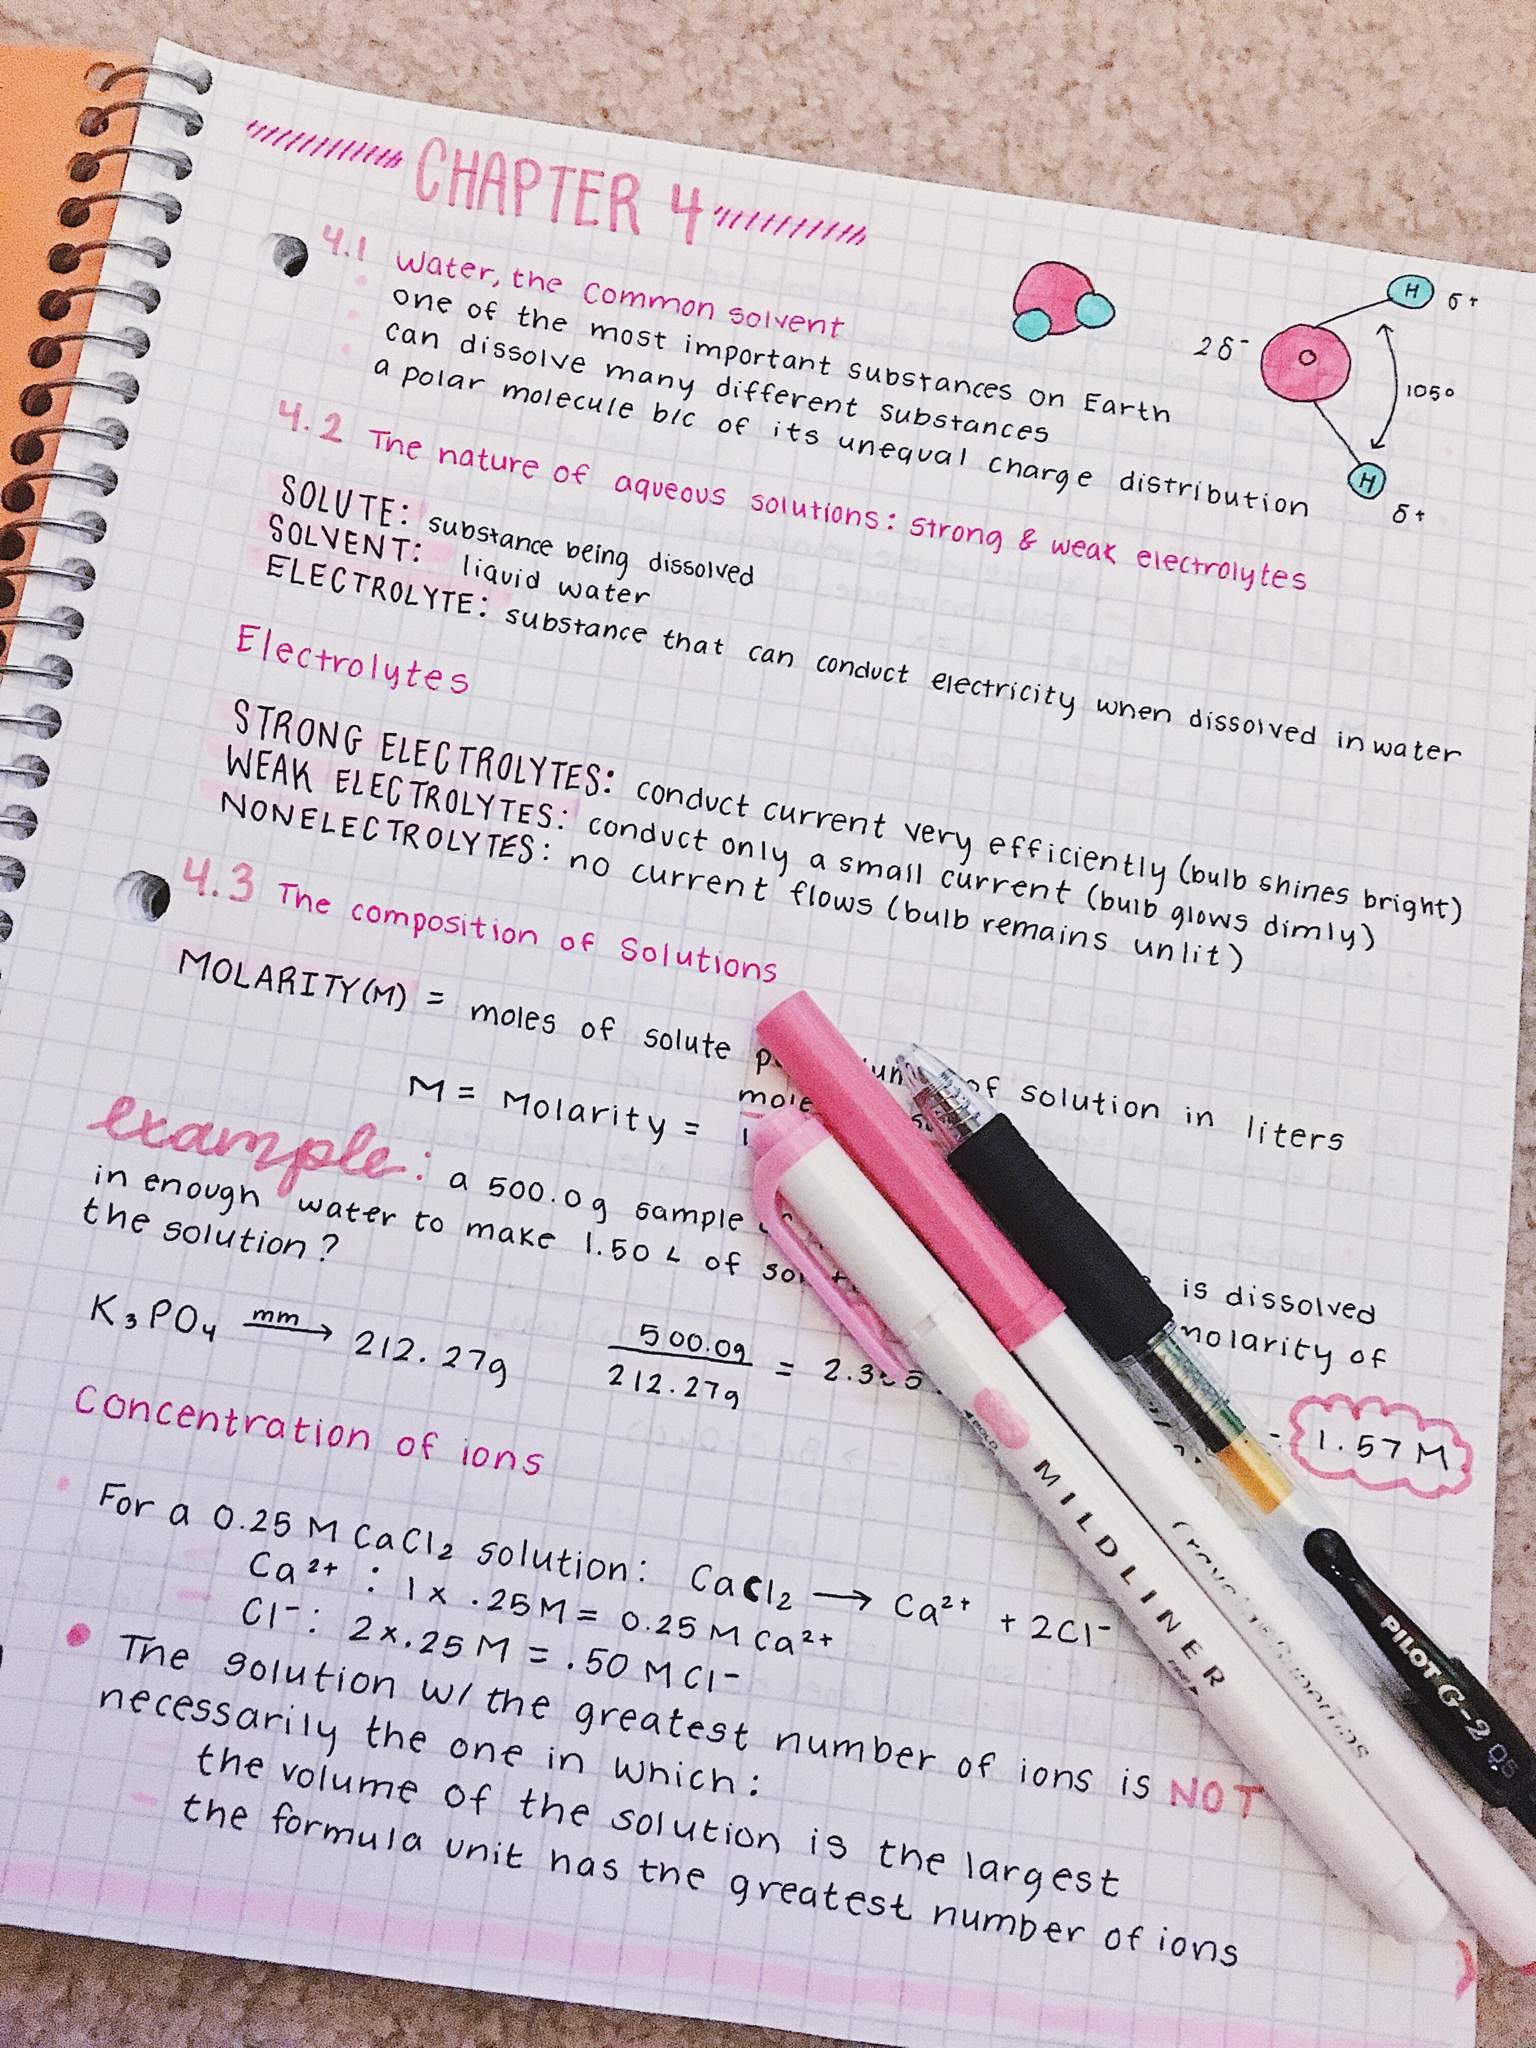 CHAPTER 4
4.1 Water, the common solvent
one of the most important substances on Earth
can dissolve many different substances
a polar molecule b/c of its unequal charge distribution
H δ+
2δ- O
105°
H
δ+
4.2 The nature of aqueous solutions: strong & weak electrolytes
SOLUTE: substance being dissolved
SOLVENT: liquid water
ELECTROLYTE: substance that can conduct electricity when dissolved in water
Electrolytes
STRONG ELECTROLYTES: conduct current very efficiently (bulb shines bright)
WEAK ELECTROLYTES: conduct only a small current (bulb glows dimly)
NONELECTROLYTES: no current flows (bulb remains unlit)
4.3 The composition of Solutions
MOLARITY(M) = moles of solute of solution in liters
M = Molarity =
example: a 500.0g sample is dissolved
in enough water to make 1.50 L of molarity of
the solution?
K₃PO₄ mm→ 212.27g 500.0g / 212.27g = 1.57 M
Concentration of ions
For a 0.25 M CaCl₂ solution: CaCl₂ → Ca²⁺ + 2Cl⁻
Ca²⁺ : 1 x .25M = 0.25 M Ca²⁺
Cl⁻: 2x.25 M = .50 M Cl⁻
The solution w/ the greatest number of ions is NOT
necessarily the one in which:
the volume of the solution is the largest
the formula unit has the greatest number of ions
MILDLINER
PILOT G-2 05